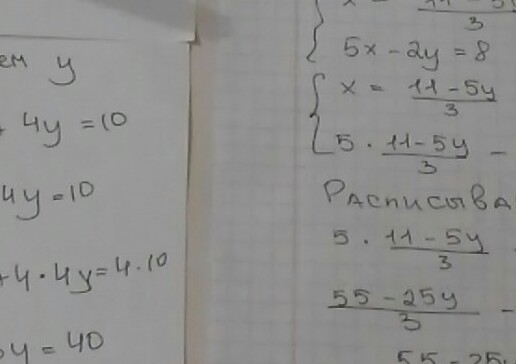 ем y
4y = 10
4y = 10
+ 4 · 4y = 4 · 10
y = 40
x = 11 - 5y / 3
5x - 2y = 8
x = 11 - 5y / 3
5 · 11 - 5y / 3 -
Расписыва
5 · 11 - 5y / 3
55 - 25y / 3 -
55 - 25y